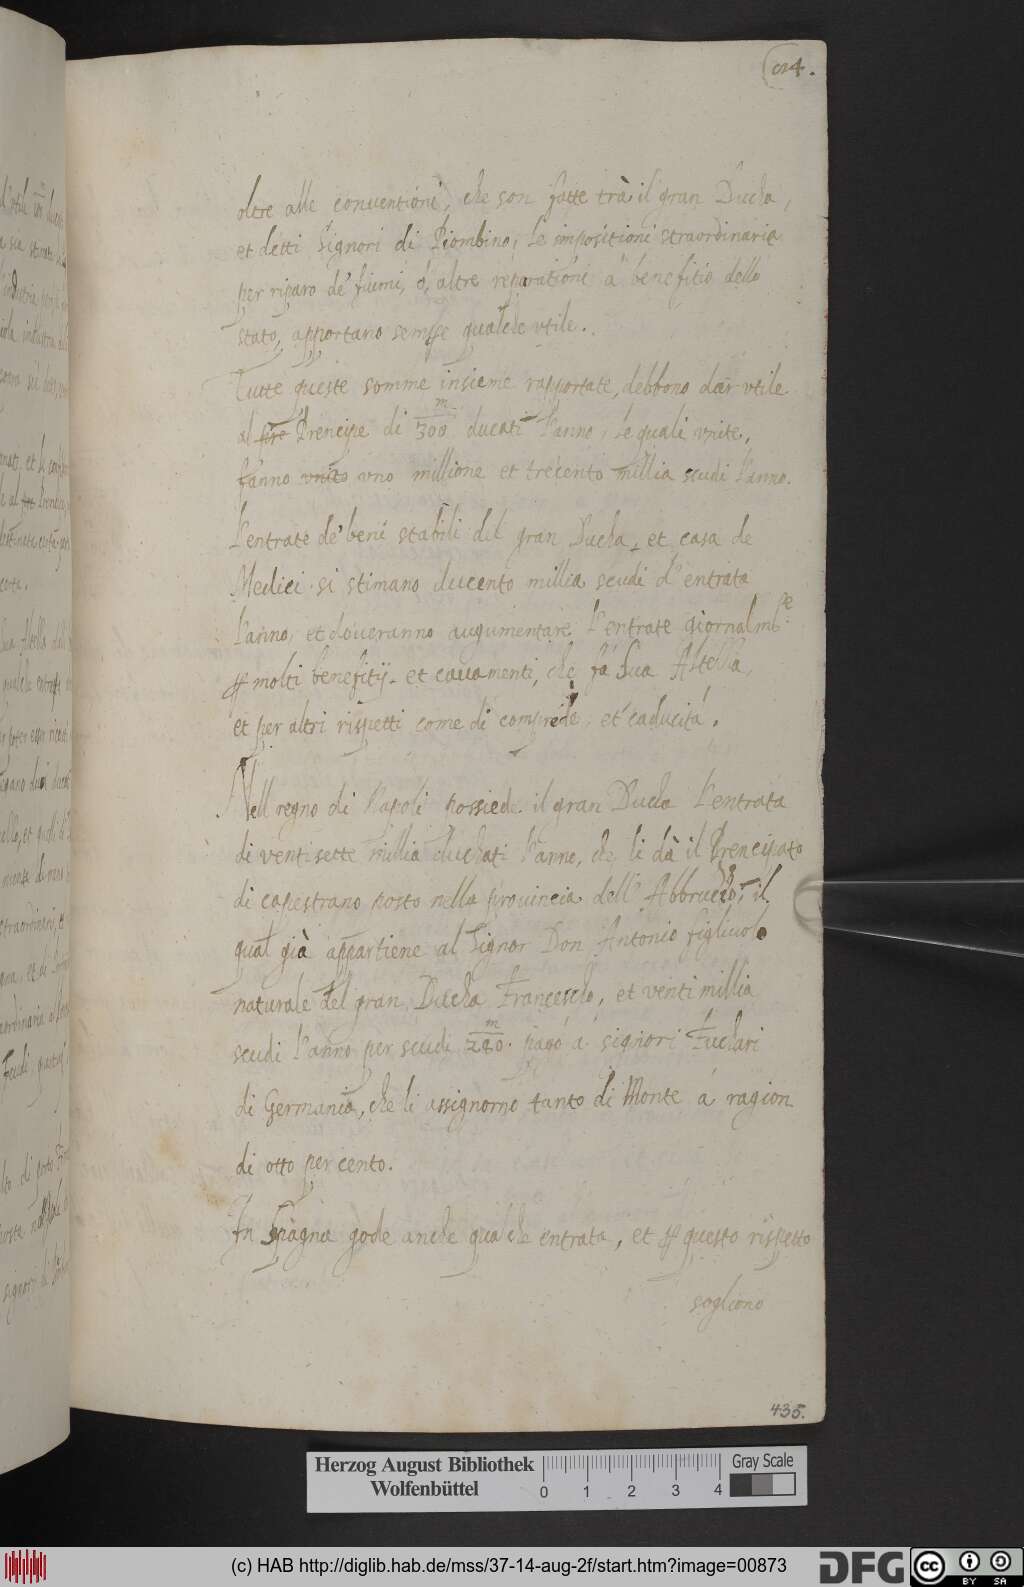 24.
oltre alle conventioni, che son fatte trà il gran Ducha,
et detti Signori di Piombino, le impositioni straordinarie
per riparo de' fiumi, ò, altre reparationi à benefitio dello
stato, apportano sempre qualche utile.
Tutte queste somme insieme rapportate, debbono dar utile
al Prencipe di 300 m ducati l'anno, le quali unite,
fanno uno millione et trecento millia scudi l'anno.
L'entrate de' beni stabili del gran Ducha, et casa de
Medici si stimano ducento millia scudi d'entrata
l'anno, et doveranno augumentare l'entrate giornalmte
p molti benefitij, et cavamenti, che fà Sua Altezza,
et per altri rispetti come di comprede, et caducità.
Nell regno di Napoli possiede il gran Ducha l'entrata
di ventisette millia duchati l'anno, che li dà il Prencipato
di capestrano posto nella provincia dell' Abbruzzo, il
qual già appartiene al Signor Don Antonio figliuolo
naturale del gran Ducha Francescho, et venti millia
scudi l'anno per scudi 280 m pagò à signori Fuchari
di Germania, che li assignorno tanto di Monte à ragion
di otto per cento.
In Spagna gode anche qualche entrata, et p questo rispetto
sogliono
435.
Herzog August Bibliothek
Wolfenbüttel
0 1 2 3 4
Gray Scale
(c) HAB http://diglib.hab.de/mss/37-14-aug-2f/start.htm?image=00873
DFG
CC BY SA